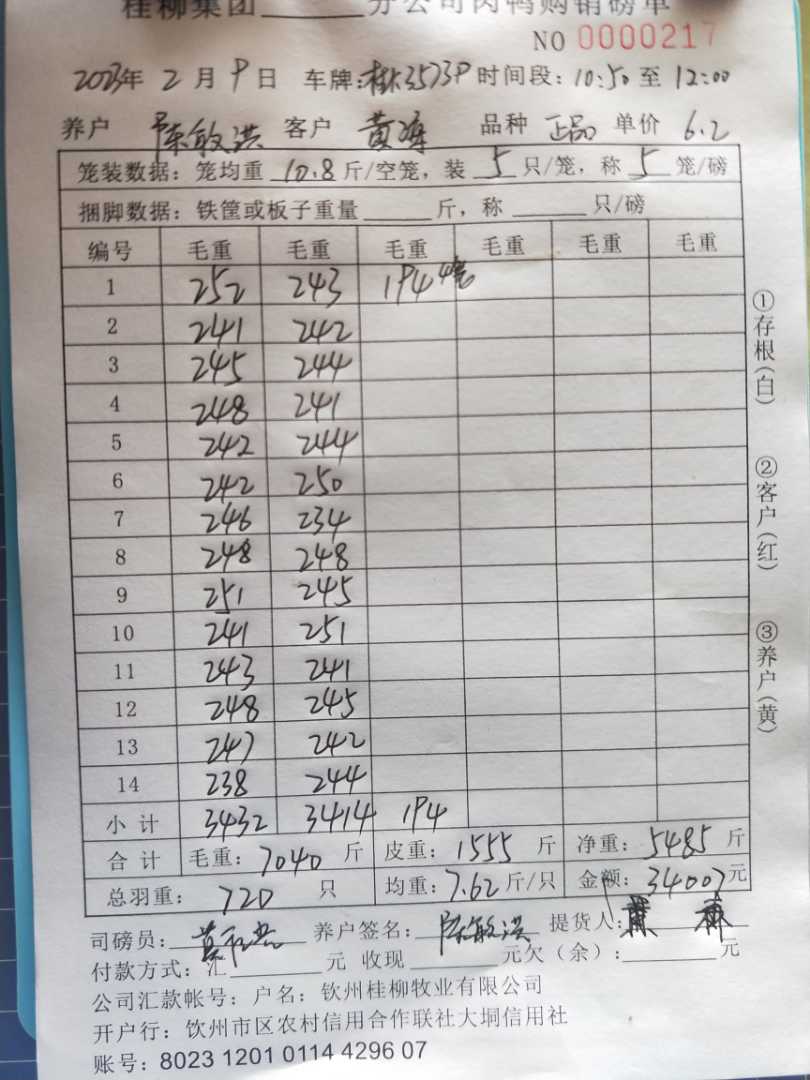 桂柳集团______分公司肉鸭购销磅单
NO 0000217
2023年 2 月 9 日 车牌:桂K3573P 时间段: 10:50 至 12:00
养户 陈敏洪 客户 黄海 品种 正品 单价 6.2
笼装数据: 笼均重 10.8 斤/空笼, 装 5 只/笼, 称 5 笼/磅
捆脚数据: 铁筐或板子重量______斤, 称______只/磅
编号 毛重 毛重 毛重 毛重 毛重 毛重
1 252 243 194 4笼
2 241 242
3 245 244
4 248 241
5 242 244
6 242 250
7 246 234
8 248 248
9 251 245
10 241 251
11 243 241
12 248 245
13 247 242
14 238 244
小计 3432 3414 194
合计 毛重: 7040 斤 皮重: 1555 斤 净重: 5485 斤
总羽重: 720 只 均重: 7.62 斤/只 金额: 34007 元
司磅员: 养户签名: 陈敏洪 提货人:
付款方式: 汇______元 收现______元欠(余):______元
公司汇款帐号: 户名: 钦州桂柳牧业有限公司
开户行: 钦州市区农村信用合作联社大垌信用社
账号: 8023 1201 0114 4296 07
①存根(白)
②客户(红)
③养户(黄)